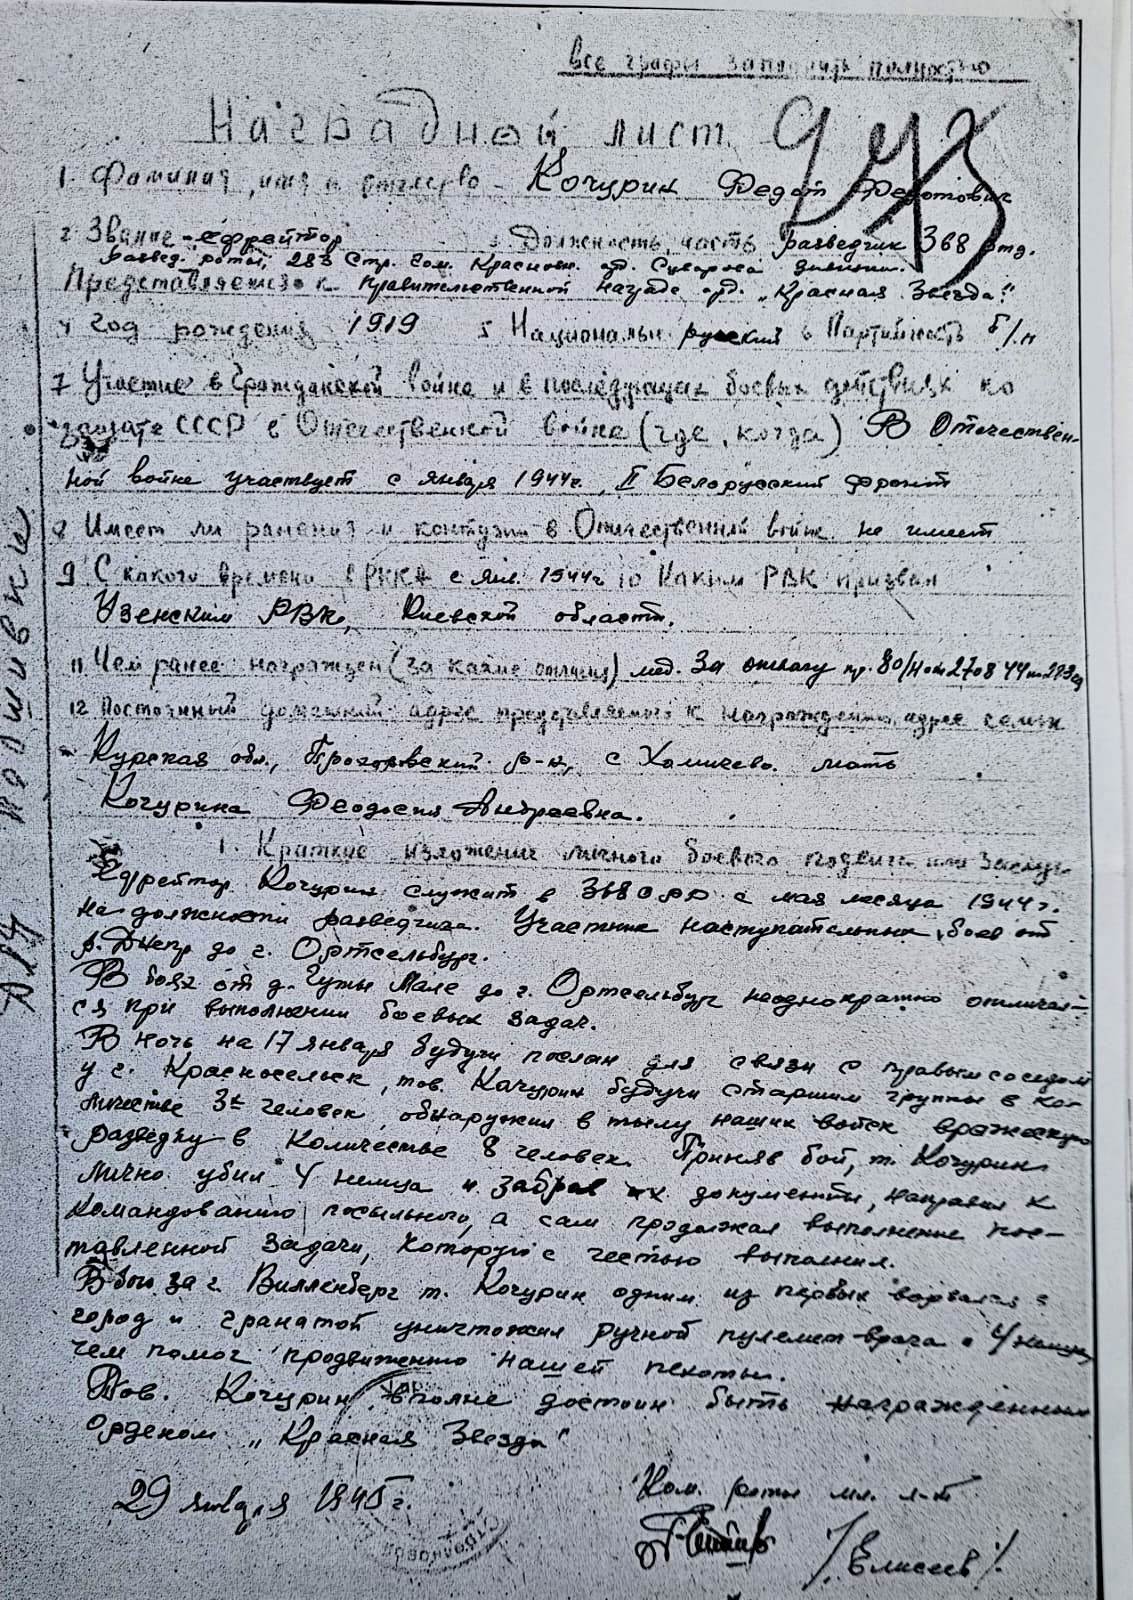 все графы заполнить полностью
Наградной лист
1. Фамилия, имя и отчество - Кочурин Федот Федотович
2 Звание - ефрейтор 3. Должность, часть разведчик 368 отд.
развед. роты, 283 Стр. Гом. Краснозн. орд. Суворова дивизии.
Представляется к правительственной награде орд. „Красная Звезда"
4 Год рождения 1919 5 Национальн русский 6 Партийность б/п
7 Участие в Гражданской войне и в последующих боевых действиях по
защите СССР в Отечественной войне (где, когда) В Отечествен-
ной войне участвует с января 1944г., II Белорусский фронт
8 Имеет ли ранения и контузии в Отечественной войне не имеет
9 С какого времени в РККА с янв. 1944г 10 Каким РВК призван
Узенским РВК, Киевской области.
11 Чем ранее награжден (за какие отличия) мед. За отвагу пр. 80/н от 27.08.44
12 Постоянный домашний адрес представляемого к награждению, адрес семьи
Курская обл., Прохоровский р-н, с Хомичево. мать
Кочурина Феодосия Андреевна.
1. Краткое изложение личного боевого подвига или заслуг
Ефрейтор Кочурин служит в 368 ОРР с мая месяца 1944г.
на должности разведчика. Участник наступательных боев от
р. Днепр до г. Ортсельбург.
В боях от д. Гуты Мале до г. Ортсельбург неоднократно отличал-
ся при выполнении боевых задач.
В ночь на 17 января будучи послан для связи с правым соседом
у г. Красносельск, тов. Качурин будучи старшим группы в ко-
личестве 3х человек, обнаружил в тылу наших войск вражескую
разведку в количестве 8 человек. Приняв бой, т. Кочурин
лично убил 4 немца и забрав их документы, направил к
командованию посыльного, а сам продолжал выполнение пос-
тавленной задачи, которую с честью выполнил.
В бою за г. Вилленберг т. Кочурин одним из первых ворвался в
город и гранатой уничтожил ручной пулемет врага и 4 немца,
чем помог продвижению нашей пехоты.
Тов. Кочурин вполне достоин быть награжденным
Орденом „Красная Звезда"
29 января 1945г.
Ком. роты мл. л-т
/Елисеев/
Для подшивки